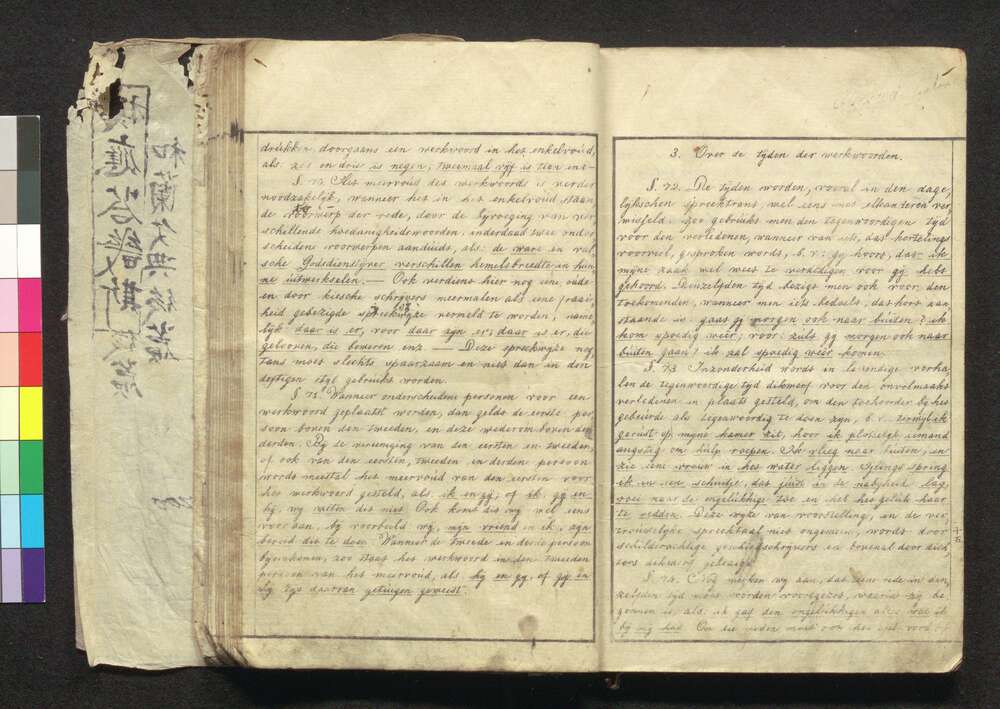 drukken, doorgaans een werkwoord in het enkelvoud,
als: zes en drie is negen, tweemaal vyf is tien enz —
§. 70 Het meervoud des werkwoords is verder
noodzakelyk, wanneer het in het enkelvoud staan
de voorwerp der rede, door de byvoeging van ver
schillende hoedanigheidswoorden, inderdaad twee onder
scheidene voorwerpen aanduidt, als: de ware en val
sche Godsdienstyver verschillen hemelsbreedte in hun
ne uitwerkselen. — Ook verdient hier nog eene oude
en door kiesche schryvers meermalen als eene fraai
heid gebezigde spreekwyze vermeld te worden, name
lyk daar is er, voor daar zyn er; daar is er, die
gelooven, die beweren enz. — Deze spreekwyze nog
tans moet slechts spaarzaam en niet dan in den
deftigen styl gebruikt worden.
§. 71. Wanneer onderscheidene personen voor een
werkwoord geplaatst worden, dan geldt de eerste per
soon boven den tweeden, en deze wederom boven den
derden. By de vereeniging van den eersten en tweeden,
of ook van den eersten, tweeden en derden persoon
wordt meestal het meervoud van den eersten voor
het werkwoord gesteld, als ik en gy, of ik, gy en
hy, wy weten dit niet. Ook komt dit wy wel eens
vooraan, by voorbeeld wy, myn vriend en ik, zyn
bereid dit te doen. Wanneer de tweede en derde persoon
byeenkomen, zoo staat het werkwoord in den tweeden
persoon van het meervoud, als: hy en gy, of gy en
hy zyt daarvan getuigen geweest.
3. Over de tyden der werkwoorden.
§. 72. De tyden worden, vooral in den dage
lykschen spreektrant, wel eens met elkanderen ver
wisseld. Zoo gebruikt men den tegenwoordigen tyd
voor den verledenen, wanneer van iets, dat kortelings
voorviel, gesproken wordt, b. v.: gy hoort, dat ik
myne zaak wel weet te verdedigen voor gy hebt
gehoord. Denzelfden tyd bezigt men ook voor den
toekomenden, wanneer men iets bedoelt, dat kort aan
staande is: gaat gy morgen ook naar buiten? ik
kom spoedig weer; voor: zult gy morgen ook naar
buiten gaan? ik zal spoedig weer komen.
§. 73 Inzonderheid wordt in levendige verha
len de tegenwoordige tyd dikwerf voor den onvolmaakt
verledenen in plaats gesteld, om den toehoorder by het
gebeurde als tegenwoordig te doen zyn, b. v.
gerust op myne kamer zit, hoor ik plotselyk iemand
angstig om hulp roepen. Ik vlieg naar buiten, en
zie eene vrouw in het water liggen. Ylings spring
ik in een schuitje, dat juist in de nabyheid lag,
roei naar de ongelukkige toe en heb het geluk haar
te redden. Deze wyze van voorstelling, in de ver
trouwelyke spreektaal niet ongemeen, wordt door
schilderachtige geschiedschryvers en bovenal door dich
ters dikwerf gebezigd.
§. 74. Nog merken wy aan, dat eene rede in den
zelfden tyd moet worden voortgezet, waarin zy be
gonnen is, als: ik gaf den ongelukkigen alles wat ik
by my had. Om die reden moet ook het